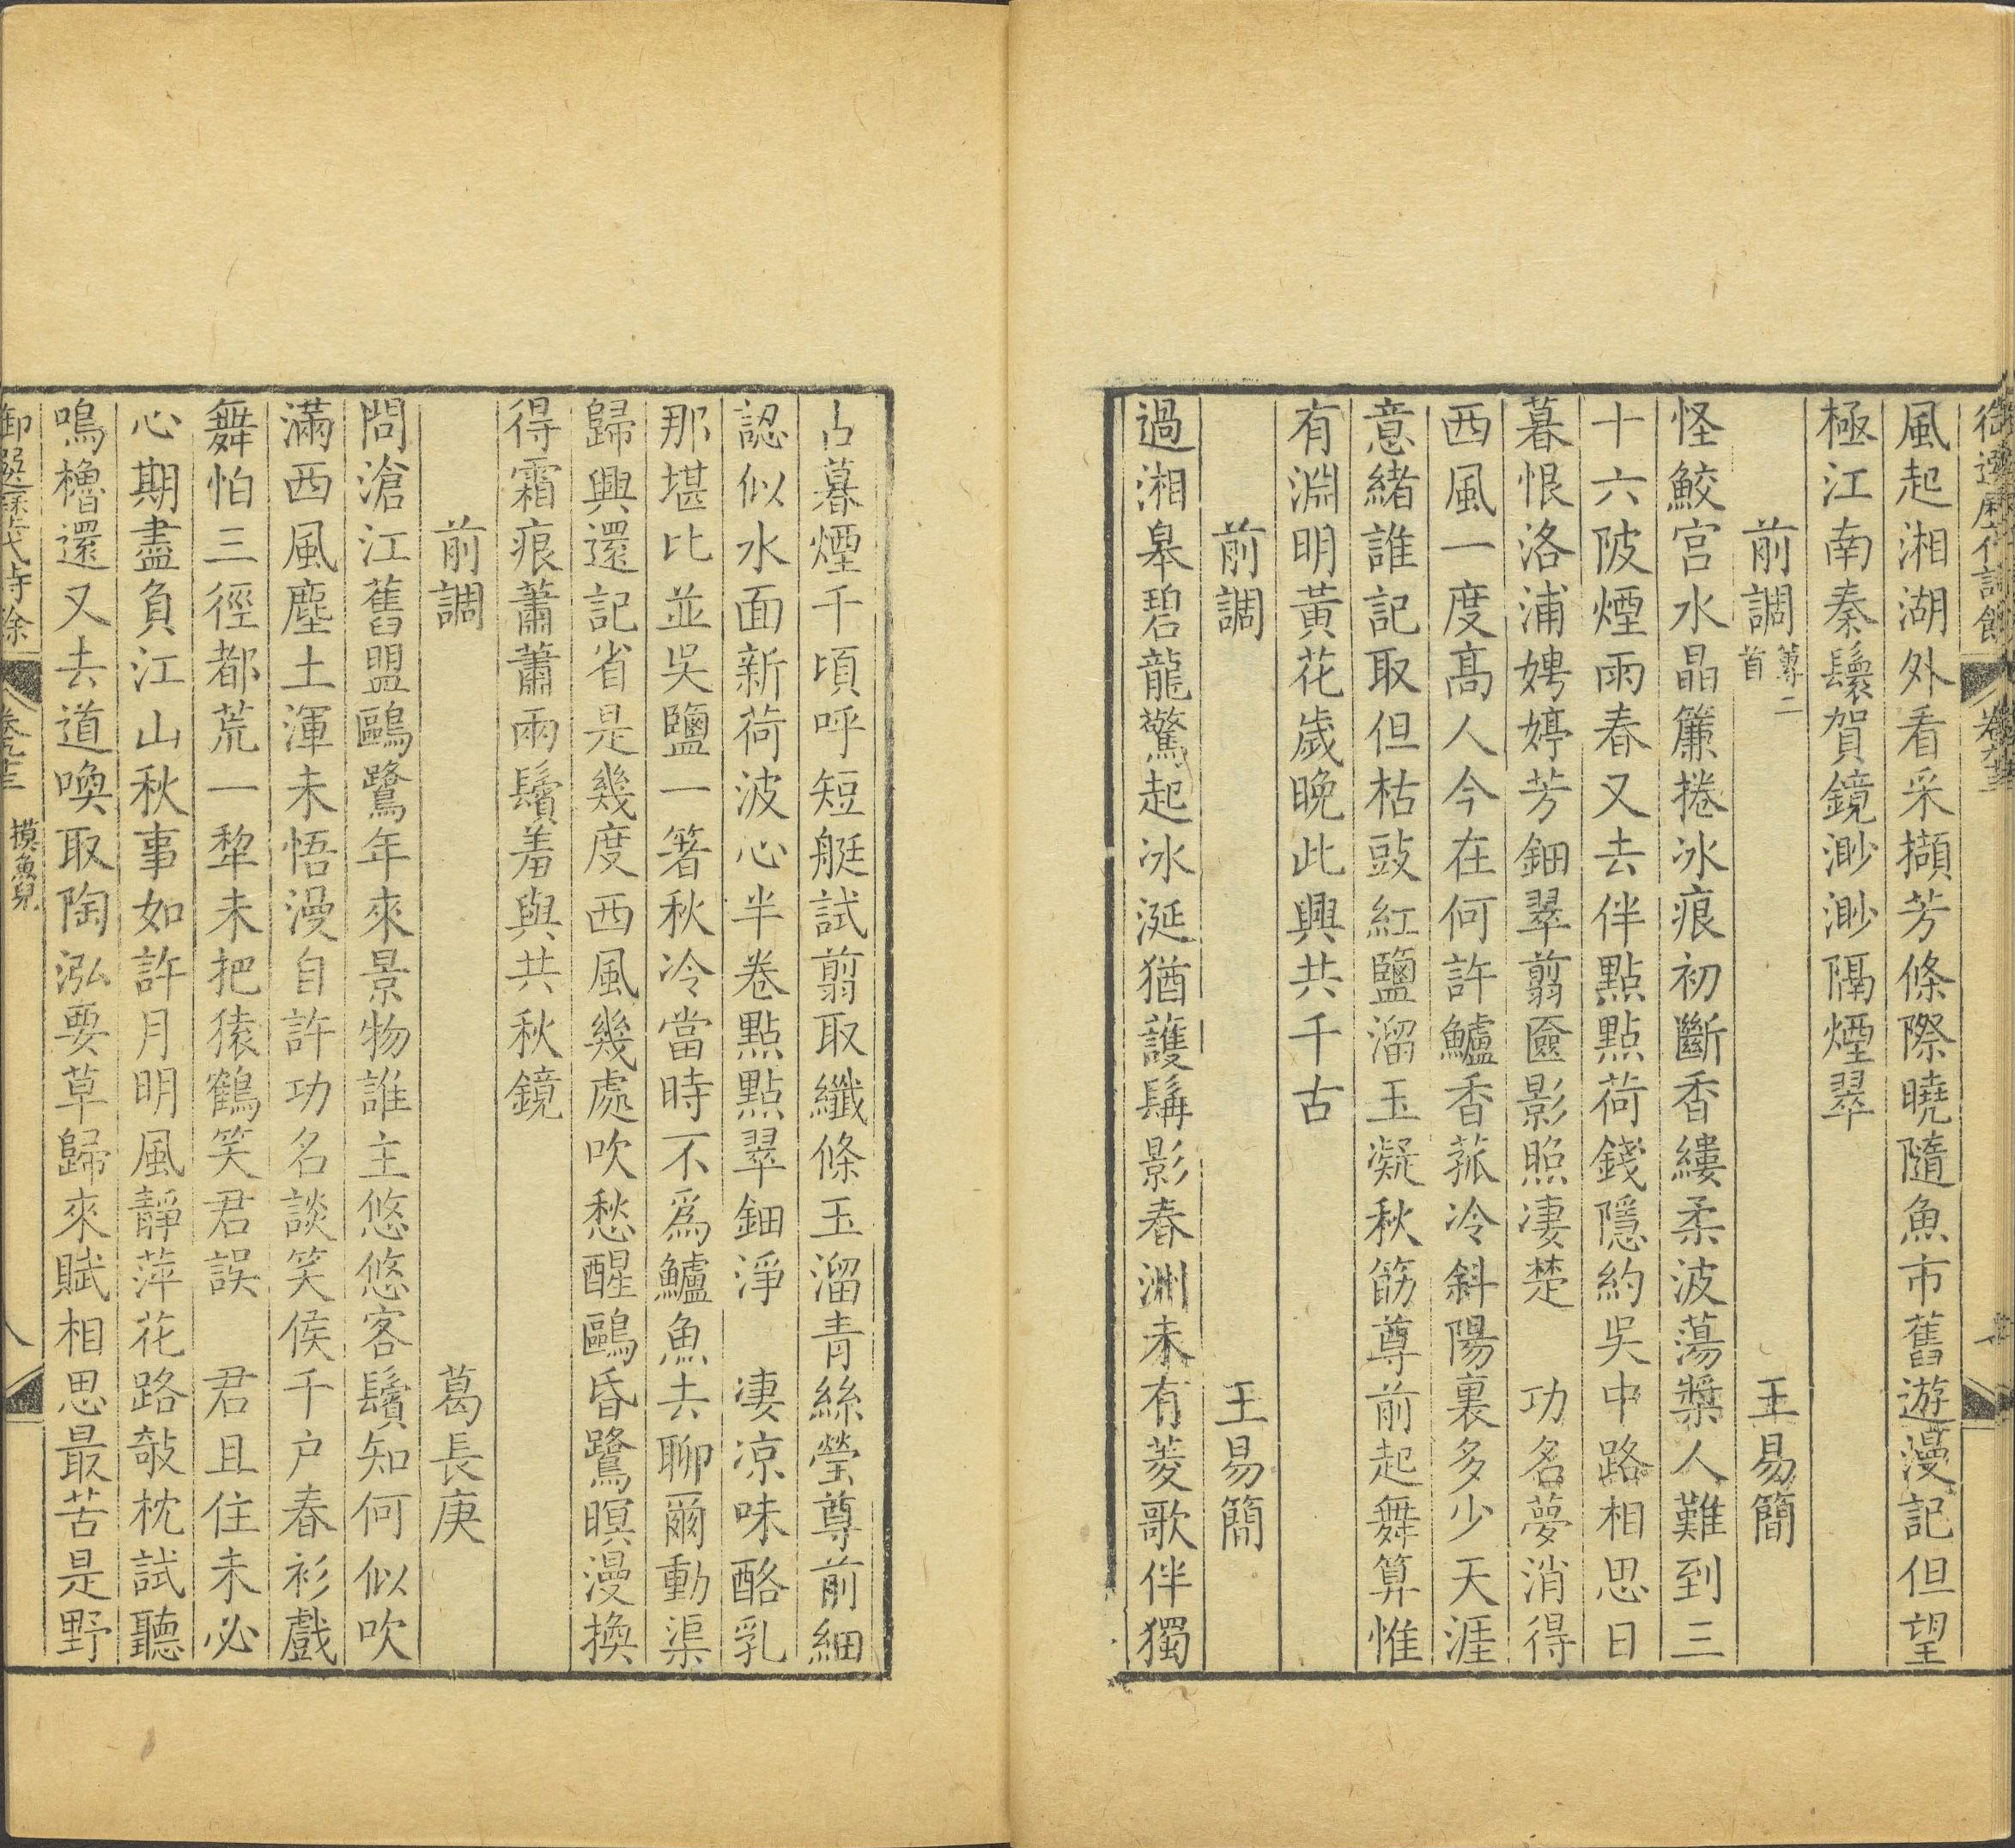 風起湘湖外看采擷芳條際曉隨魚市舊遊漫記但望
極江南秦鬟賀鏡渺渺隔煙翠
前調 蓴二首 王易簡
怪鮫宮水晶簾捲冰痕初斷香縷柔波蕩槳人難到三
十六陂煙雨春又去伴點點荷錢隱約吳中路相思日
暮恨洛浦娉婷芳鈿翠翦奩影照凄楚 功名夢消得
西風一度高人今在何許鱸香菰冷斜陽裏多少天涯
意緒誰記取但枯豉紅鹽溜玉凝秋筯尊前起舞算惟
有淵明黃花歲晚此興共千古
前調 王易簡
過湘皋碧龍驚起冰涎猶護髯影春洲未有菱歌伴獨
占暮煙千頃呼短艇試翦取纖條玉溜青絲瑩尊前細
認似水面新荷波心半卷點點翠鈿淨 凄凉味酪乳
那堪比並吳鹽一箸秋冷當時不爲鱸魚去聊爾動渠
歸興還記省是幾度西風幾處吹愁醒鷗昏鷺暝漫換
得霜痕蕭蕭兩鬢羞與共秋鏡
前調 葛長庚
問滄江舊盟鷗鷺年來景物誰主悠悠客鬢知何似吹
滿西風塵土渾未悟漫自許功名談笑侯千戶春衫戲
舞怕三徑都荒一犂未把猿鶴笑君誤 君且住未必
心期盡負江山秋事如許月明風靜萍花路敧枕試聽
鳴櫓還又去道喚取陶泓要草歸來賦相思最苦是野
御選歷代詩餘 卷九十三 摸魚兒 八